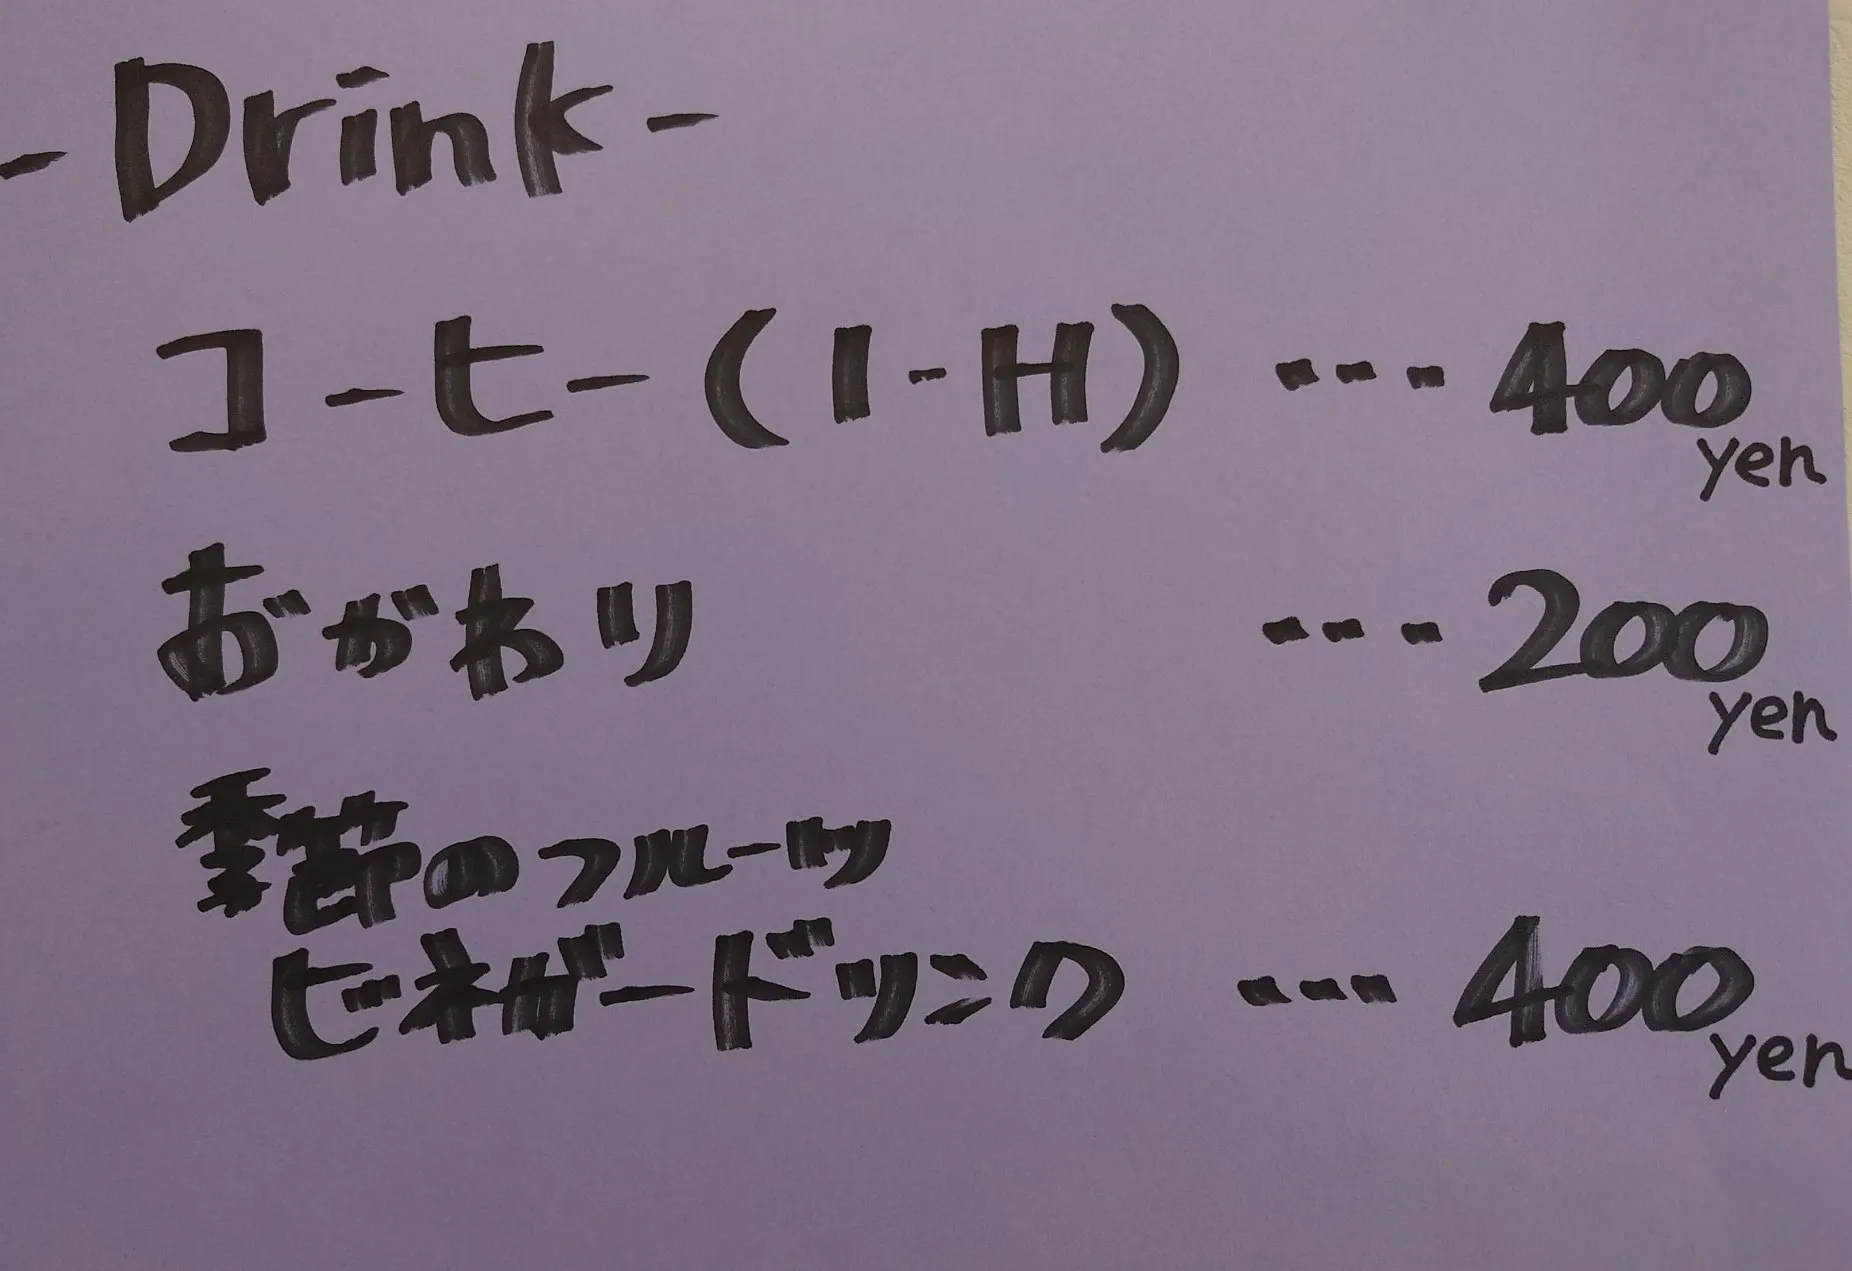 - Drink -
コーヒー(I-H) --- 400 yen
おがわり --- 200 yen
季節のフルーツ
ビネガードリンク --- 400 yen